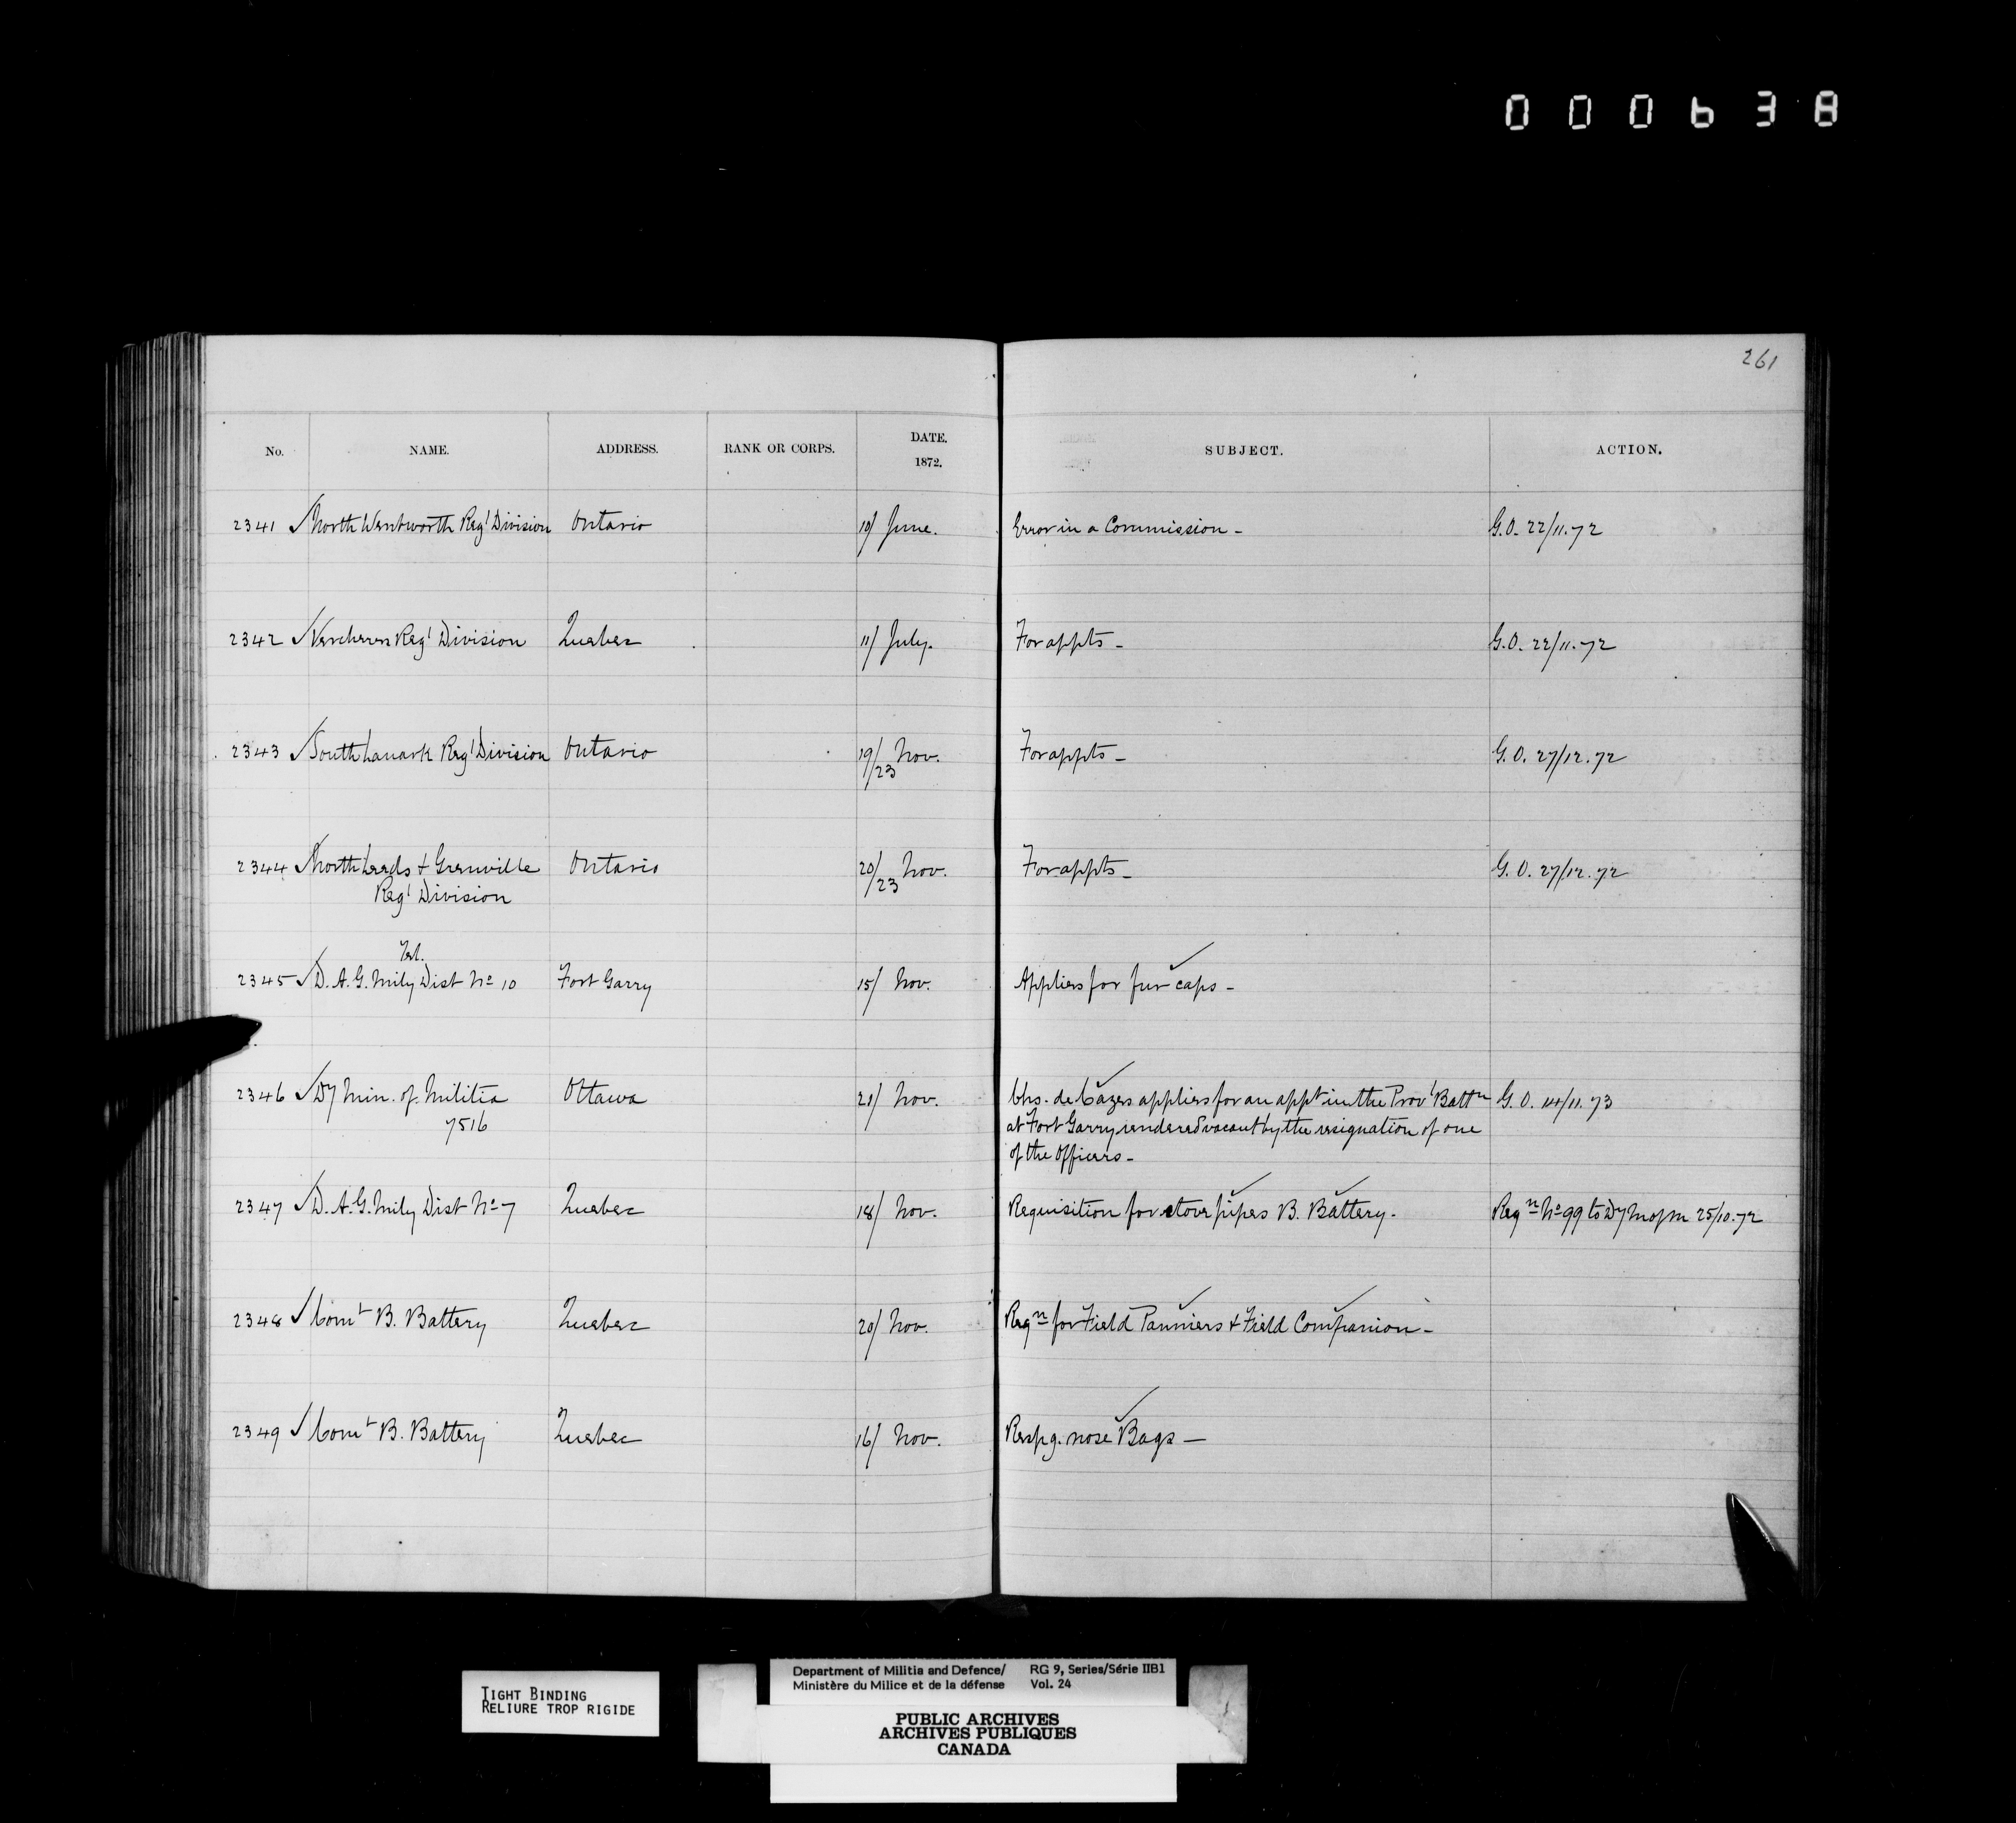 000638
261
No. NAME. ADDRESS. RANK OR CORPS. DATE. 1872. SUBJECT. ACTION.
2341 ✓North Wentworth Regl Division Ontario 19/ June. Error in a Commission - G.O. 22/11.72
2342 ✓Vercheres Regl Division Quebec 11/ July. For appts - G.O. 22/11.72
2343 ✓South Lanark Regl Division Ontario 19/23 Nov. For appts - G.O. 27/12.72
2344 ✓North Leeds + Grenville Ontario 20/23 Nov. For appts - G.O. 27/12.72
Regl Division
Tel.
2345 ✓D.A.G. Mily Dist No 10 Fort Garry 15/ Nov. Applies for fur caps -
2346 ✓Dy Min. of Militia Ottawa 21/ Nov. Chs. de Cazes applies for an appt in the Provl Battn G.O. 14/11.73
7516 at Fort Garry rendered vacant by the resignation of one
of the Officers -
2347 ✓D.A.G. Mily Dist No 7 Quebec 18/ Nov. Requisition for stove pipes B. Battery. Reqn No 99 to Dy M of M 25/10.72
2348 ✓Comt B. Battery Quebec 20/ Nov. Reqn for Field Panniers + Field Companion -
2349 ✓Comt B. Battery Quebec 16/ Nov. Respg. nose Bags -
TIGHT BINDING
RELIURE TROP RIGIDE
Department of Militia and Defence/ RG 9, Series/Série IIB1
Ministère du Milice et de la défense Vol. 24
PUBLIC ARCHIVES
ARCHIVES PUBLIQUES
CANADA